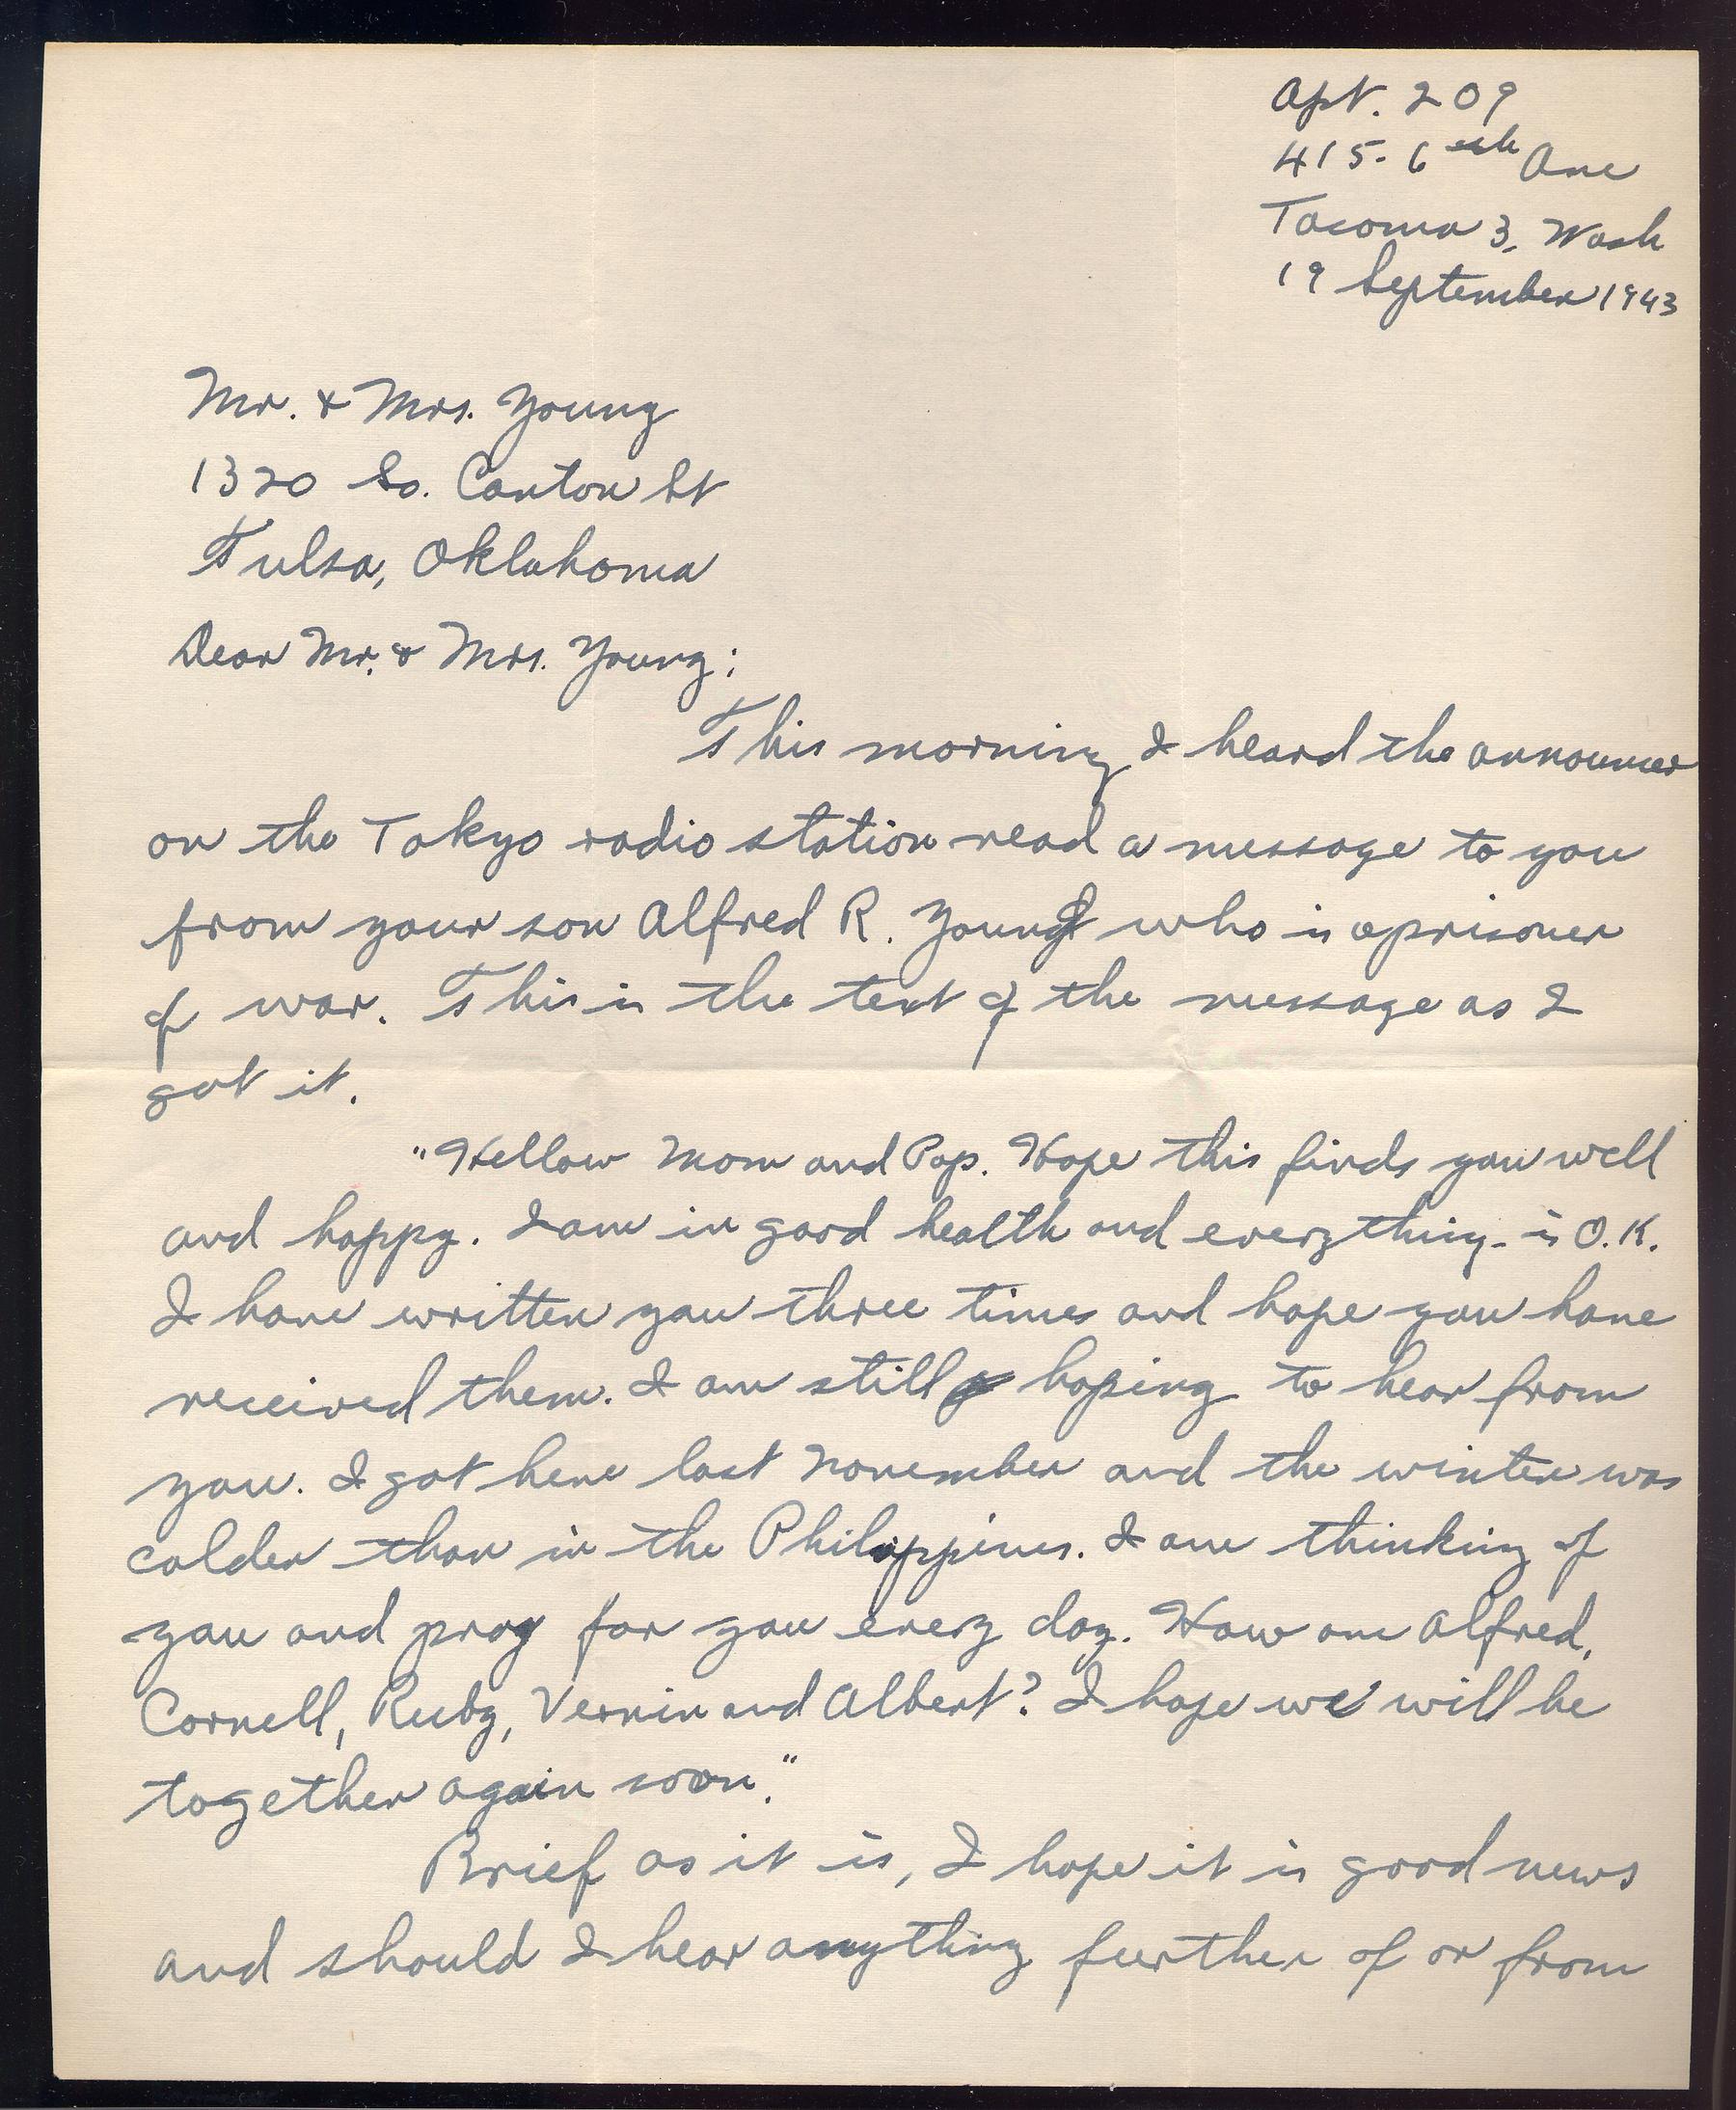 Apt. 209
415- 6th Ave
Tacoma 3, Wash
19 September 1943
Mr. & Mrs. Young
1320 So. Canton St
Tulsa, Oklahoma
Dear Mr. & Mrs. Young:
This morning I heard the announcer
on the Tokyo radio station read a message to you
from your son Alfred R. Young who is a prisoner
of war. This is the text of the message as I
got it.
"Hellow Mom and Pop. Hope this finds you well
and happy. I am in good health and everything is O.K.
I have written you three times and hope you have
received them. I am still hoping to hear from
you. I got here last November and the winter was
colder than in the Philippines. I am thinking of
you and pray for you every day. How are Alfred,
Cornell, Ruby, Vernin and Albert? I hope we will be
together again soon."
Brief as it is, I hope it is good news
and should I hear anything further of or from